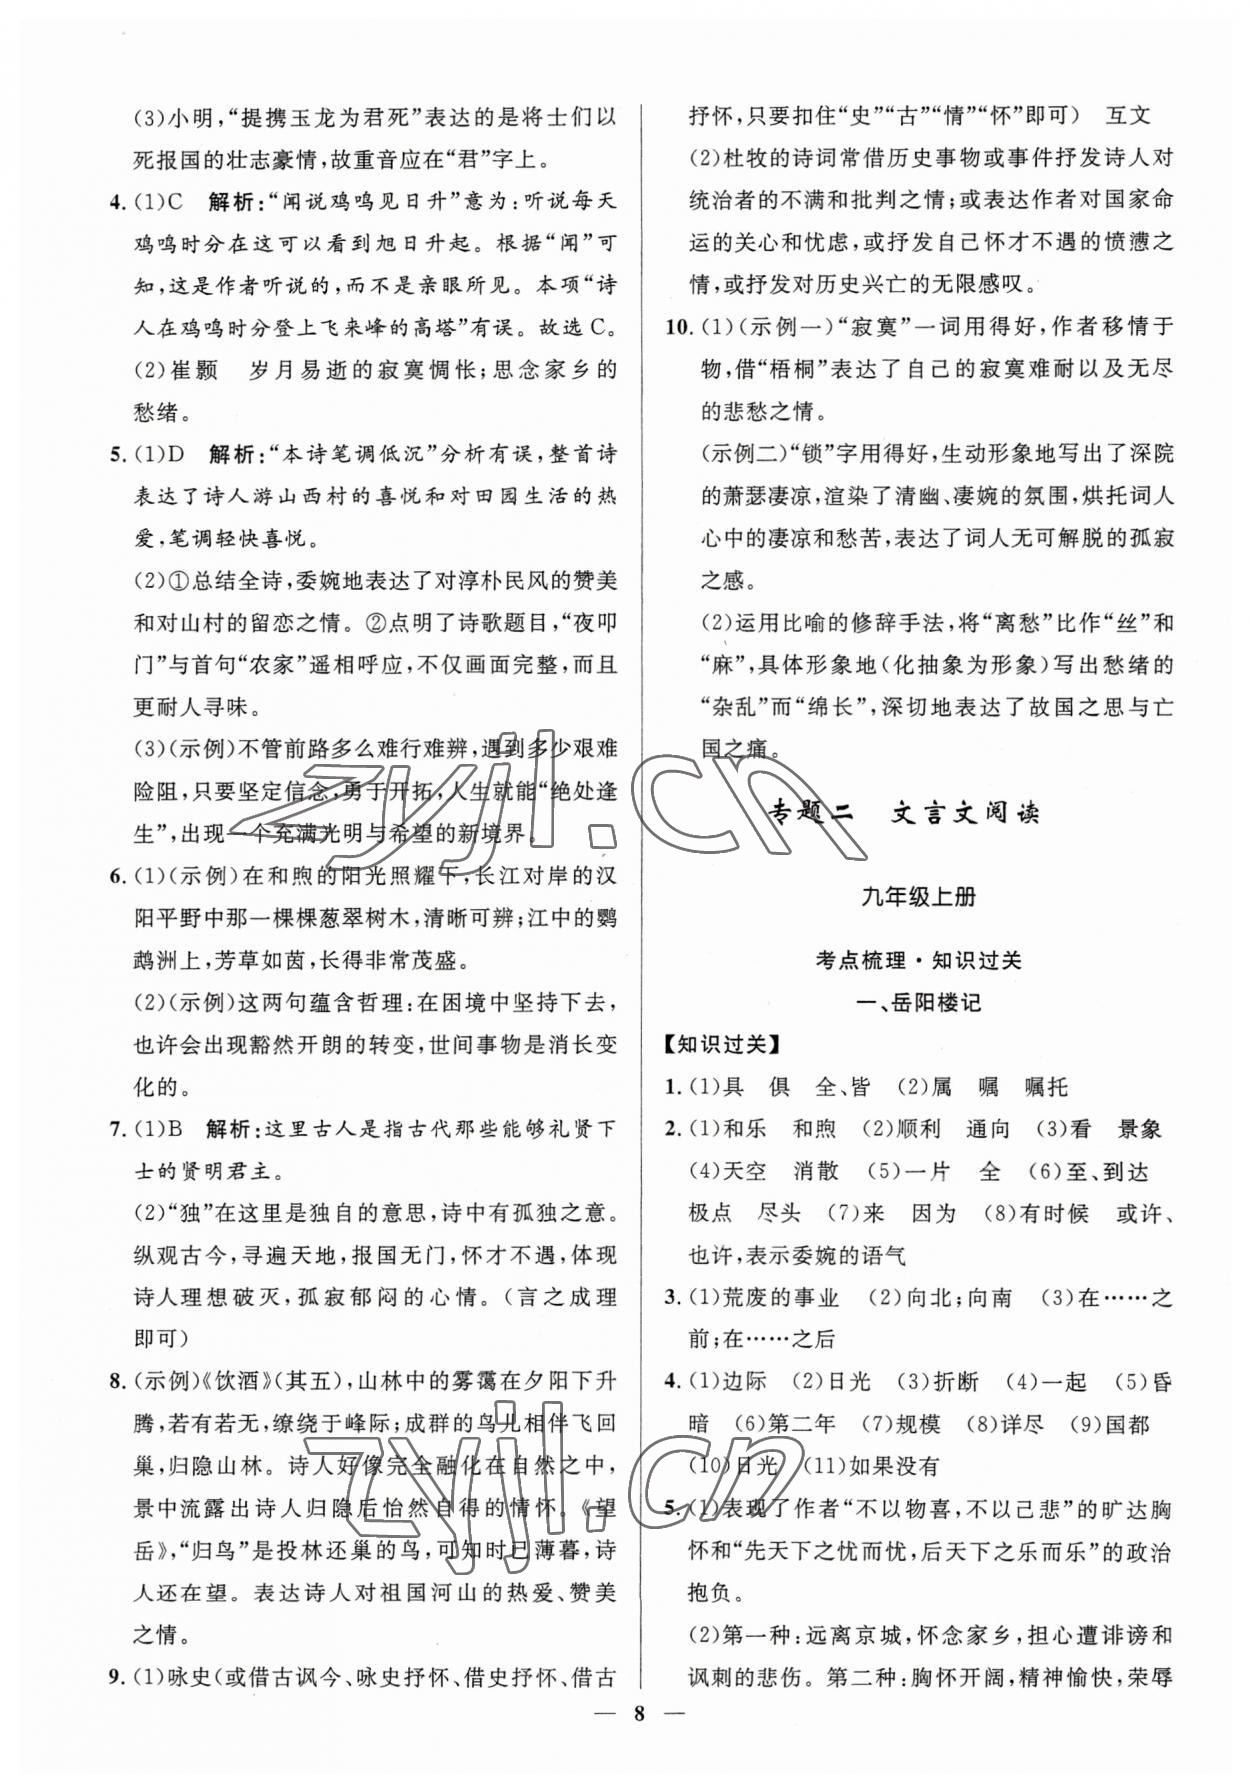 (3)小明,“提携玉龙为君死”表达的是将士们以
死报国的壮志豪情,故重音应在“君”字上。
4. (1)C 解析:“闻说鸡鸣见日升”意为:听说每天
鸡鸣时分在这可以看到旭日升起。根据“闻”可
知,这是作者听说的,而不是亲眼所见。本项“诗
人在鸡鸣时分登上飞来峰的高塔”有误。故选C。
(2)崔颢 岁月易逝的寂寞惆怅;思念家乡的
愁绪。
5. (1)D 解析:“本诗笔调低沉”分析有误,整首诗
表达了诗人游山西村的喜悦和对田园生活的热
爱,笔调轻快喜悦。
(2)①总结全诗,委婉地表达了对淳朴民风的赞美
和对山村的留恋之情。②点明了诗歌题目,“夜叩
门”与首句“农家”遥相呼应,不仅画面完整,而且
更耐人寻味。
(3)(示例)不管前路多么难行难辨,遇到多少艰难
险阻,只要坚定信念,勇于开拓,人生就能“绝处逢
生”,出现一个充满光明与希望的新境界。
6. (1)(示例)在和煦的阳光照耀下,长江对岸的汉
阳平野中那一棵棵葱翠树木,清晰可辨;江中的鹦
鹉洲上,芳草如茵,长得非常茂盛。
(2)(示例)这两句蕴含哲理:在困境中坚持下去,
也许会出现豁然开朗的转变,世间事物是消长变
化的。
7. (1)B 解析:这里古人是指古代那些能够礼贤下
士的贤明君主。
(2)“独”在这里是独自的意思,诗中有孤独之意。
纵观古今,寻遍天地,报国无门,怀才不遇,体现
诗人理想破灭,孤寂郁闷的心情。(言之成理
即可)
8. (示例)《饮酒》(其五),山林中的雾霭在夕阳下升
腾,若有若无,缭绕于峰际;成群的鸟儿相伴飞回
巢,归隐山林。诗人好像完全融化在自然之中,
景中流露出诗人归隐后怡然自得的情怀。《望
岳》,“归鸟”是投林还巢的鸟,可知时已薄暮,诗
人还在望。表达诗人对祖国河山的热爱、赞美
之情。
9. (1)咏史(或借古讽今、咏史抒怀、借史抒怀、借古
抒怀,只要扣住“史”“古”“情”“怀”即可) 互文
(2)杜牧的诗词常借历史事物或事件抒发诗人对
统治者的不满和批判之情;或表达作者对国家命
运的关心和忧虑,或抒发自己怀才不遇的愤懑之
情,或抒发对历史兴亡的无限感叹。
10. (1)(示例一)“寂寞”一词用得好,作者移情于
物,借“梧桐”表达了自己的寂寞难耐以及无尽
的悲愁之情。
(示例二)“锁”字用得好,生动形象地写出了深院
的萧瑟凄凉,渲染了清幽、凄婉的氛围,烘托词人
心中的凄凉和愁苦,表达了词人无可解脱的孤寂
之感。
(2)运用比喻的修辞手法,将“离愁”比作“丝”和
“麻”,具体形象地(化抽象为形象)写出愁绪的
“杂乱”而“绵长”,深切地表达了故国之思与亡
国之痛。
专题二 文言文阅读
九年级上册
考点梳理·知识过关
一、岳阳楼记
【知识过关】
1. (1)具 俱 全、皆 (2)属 嘱 嘱托
2. (1)和乐 和煦 (2)顺利 通向 (3)看 景象
(4)天空 消散 (5)一片 全 (6)至、到达
极点 尽头 (7)来 因为 (8)有时候 或许、
也许,表示委婉的语气
3. (1)荒废的事业 (2)向北;向南 (3)在……之
前;在……之后
4. (1)边际 (2)日光 (3)折断 (4)一起 (5)昏
暗 (6)第二年 (7)规模 (8)详尽 (9)国都
(10)日光 (11)如果没有
5. (1)表现了作者“不以物喜,不以己悲”的旷达胸
怀和“先天下之忧而忧,后天下之乐而乐”的政治
抱负。
(2)第一种:远离京城,怀念家乡,担心遭诽谤和
讽刺的悲伤。第二种:胸怀开阔,精神愉快,荣辱
— 8 —
zyjl.cn
zyjl.cn